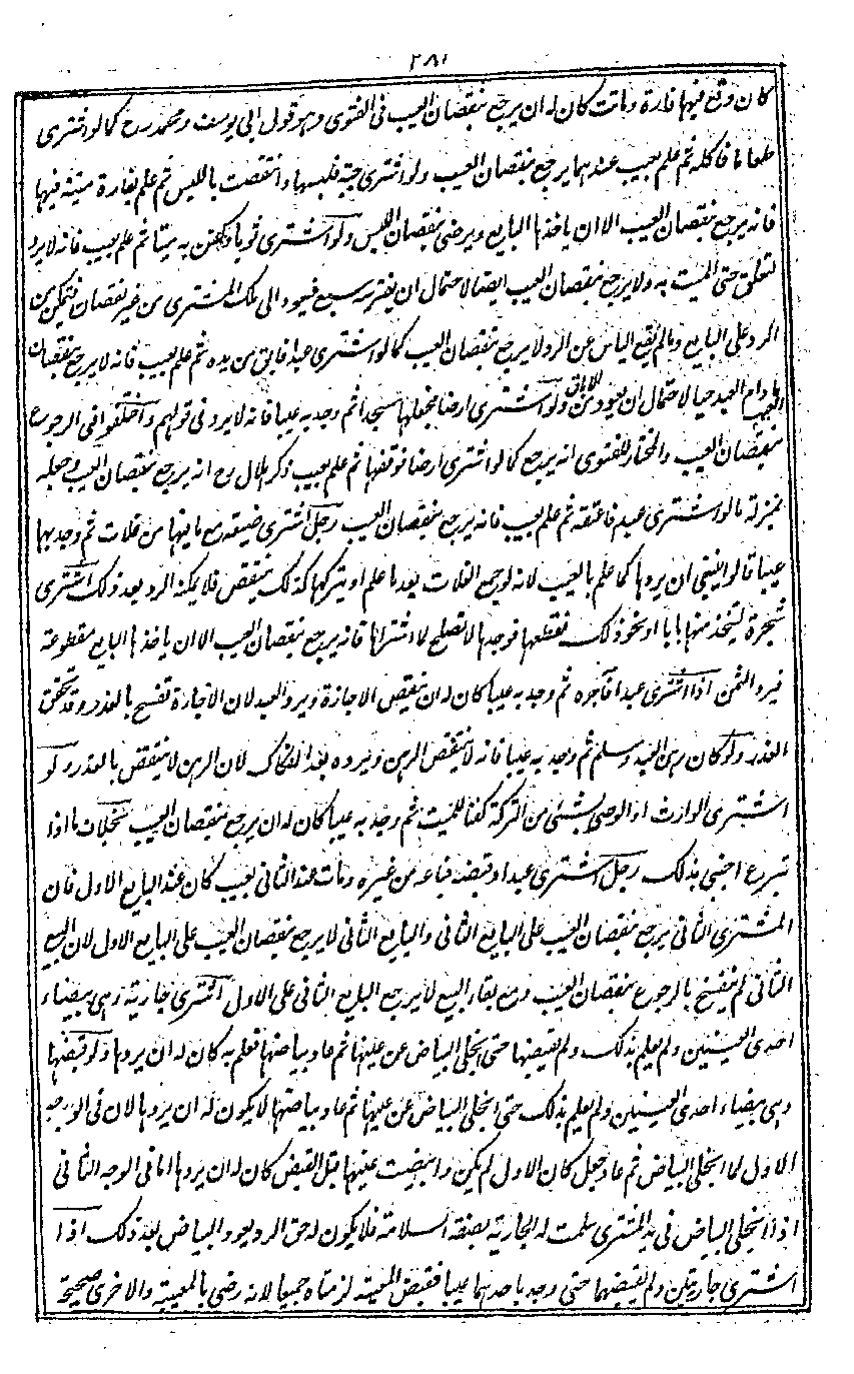 ٢٨١
كان وقع فيها فارة وماتت كان له ان يرجع بنقصان العيب فى الفتوى وهو قول ابى يوسف ومحمد رح كما لو اشترى
طعاما فاكله ثم علم بعيب عندهما يرجع بنقصان العيب ولو اشترى جبة فلبسها وانتقصت باللبس ثم علم بفارة ميتة فيها
فانه يرجع بنقصان العيب الا ان ياخذها البايع ويرضى بنقصان اللبس ولو اشترى ثوبا وكفن به ميتا ثم علم بعيب فانه لا يرد
لتعلق حق الميت به ولا يرجع بنقصان العيب ايضا لاحتمال ان يفترسه سبع فيعود الى ملك المشترى من غير نقصان فيتمكن من
الرد على البايع وما لم يقع الياس عن الرد لا يرجع بنقصان العيب كما لو اشترى عبدا فابق من يده ثم علم بعيب فانه لا يرجع بنقصان
العيب ما دام العبد حيا لاحتمال ان يعود من الاباق ولو اشترى ارضا فجعلها مسجدا ثم وجد به عيبا فانه لا يرد فى قولهم واختلفوا فى الرجوع
بنقصان العيب والمختار للفتوى انه يرجع كما لو اشترى ارضا فوقفها ثم علم بعيب ذكر هلال رح انه يرجع بنقصان العيب وجعله
بمنزلة ما لو اشترى عبدا فاعتقه ثم علم بعيب فانه يرجع بنقصان العيب رجل اشترى ضيعة مع ما فيها من غلات ثم وجد بها
عيبا قالوا ينبغى ان يردها كما علم بالعيب لانه لو جمع الغلات بعد ما علم او يتركها كذلك ينتقص فلا يمكنه الرد بعد ذلك اشترى
شجرة ليتخذ منها بابا او نحو ذلك فقطعها فوجدها لا تصلح لما اشتراها فانه يرجع بنقصان العيب الا ان ياخذها البايع مقطوعة
فيرد الثمن اذا اشترى عبدا فآجره ثم وجد به عيبا كان له ان ينقض الاجازة ويرد العبد لان الاجازة تفسخ بالعذر وقد تحقق
العذر ولو كان رهن العبد وسلم ثم وجد به عيبا فانه لا ينقض الرهن ويرده بعد الفكاك لان الرهن لا ينقض بالعذر ولو
اشترى الوارث او الوصى بشئ من التركة كفنا للميت ثم وجد به عيبا كان له ان يرجع بنقصان العيب بخلاف ما اذا
تبرع اجنبى بذلك رجل اشترى عبدا وقبضه فباعه من غيره ومات عند الثانى بعيب كان عند البايع الاول فان
المشترى الثانى يرجع بنقصان العيب على البايع الثانى والبايع الثانى لا يرجع بنقصان العيب على البايع الاول لان البيع
الثانى لم ينفسخ بالرجوع بنقصان العيب ومع بقاء البيع لا يرجع البايع الثانى على الاول اشترى جارية وهى بيضاء
احدى العينين ولم يعلم بذلك ولم يقبضها حتى انجلى البياض عن عينها ثم عاد بياضها فعلم به كان له ان يردها ولو قبضها
وهى بيضاء احدى العينين ولم يعلم بذلك حتى انجلى البياض عن عينها ثم عاد بياضها لا يكون له ان يردها لان فى الوجه
الاول لما انجلى البياض ثم عاد جعل كان الاول لم يكن وابيضت عينها قبل القبض كان له ان يردها اما فى الوجه الثانى
اذا انجلى البياض فى يد المشترى سلمت له الجارية بصفة السلامة فلا يكون له حق الرد بعود البياض بعد ذلك اذا
اشترى جاريتين ولم يقبضهما حتى وجد باحدهما عيبا فقبض المعيبة لزمتاه جميعا لانه رضى بالمعيبة والاخرى صحيحة